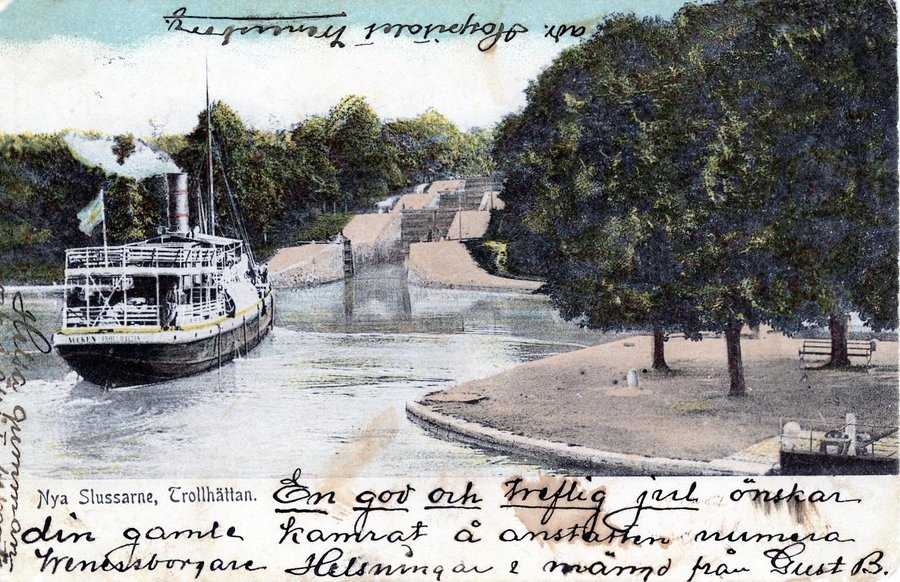 adr. Hospitalet Wenersborg.
Nya Slussarne, Trollhättan.
En god och treflig jul önskar
din gamle kamrat å anstalten numera
Wenersborgare Helsningar i mängd från Gust B.